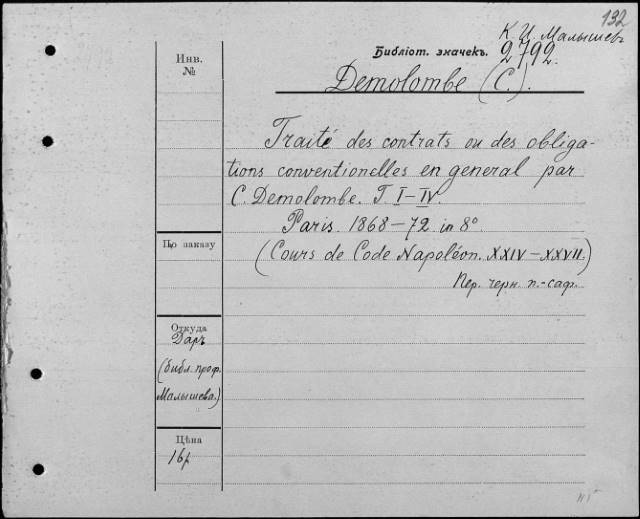 132
К. И. Малышевъ
Инв.
№
Библіот. значекъ.
2792.
Demolombe (C.).
Traité des contrats ou des obliga-
tions conventionelles en general par
C. Demolombe. T. I–IV.
Paris. 1868–72. in 8°.
(Cours de Code Napoléon. XXIV–XXVII.)
Пер. черн. п.-саф.
По заказу
Откуда
Даръ
(библ. проф.
Малышева.)
Цѣна
16р